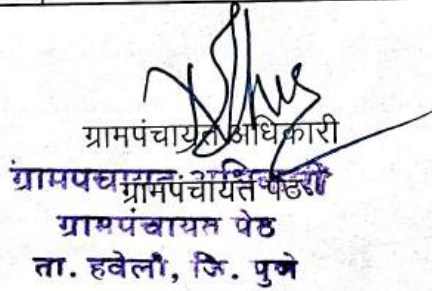 ग्रामपंचायत अधिकारी
ग्रामपंचायत अधिकारी
ग्रामपंचायत पेठ
ग्रामपंचायत पेठ
ता. हवेली, जि. पुणे